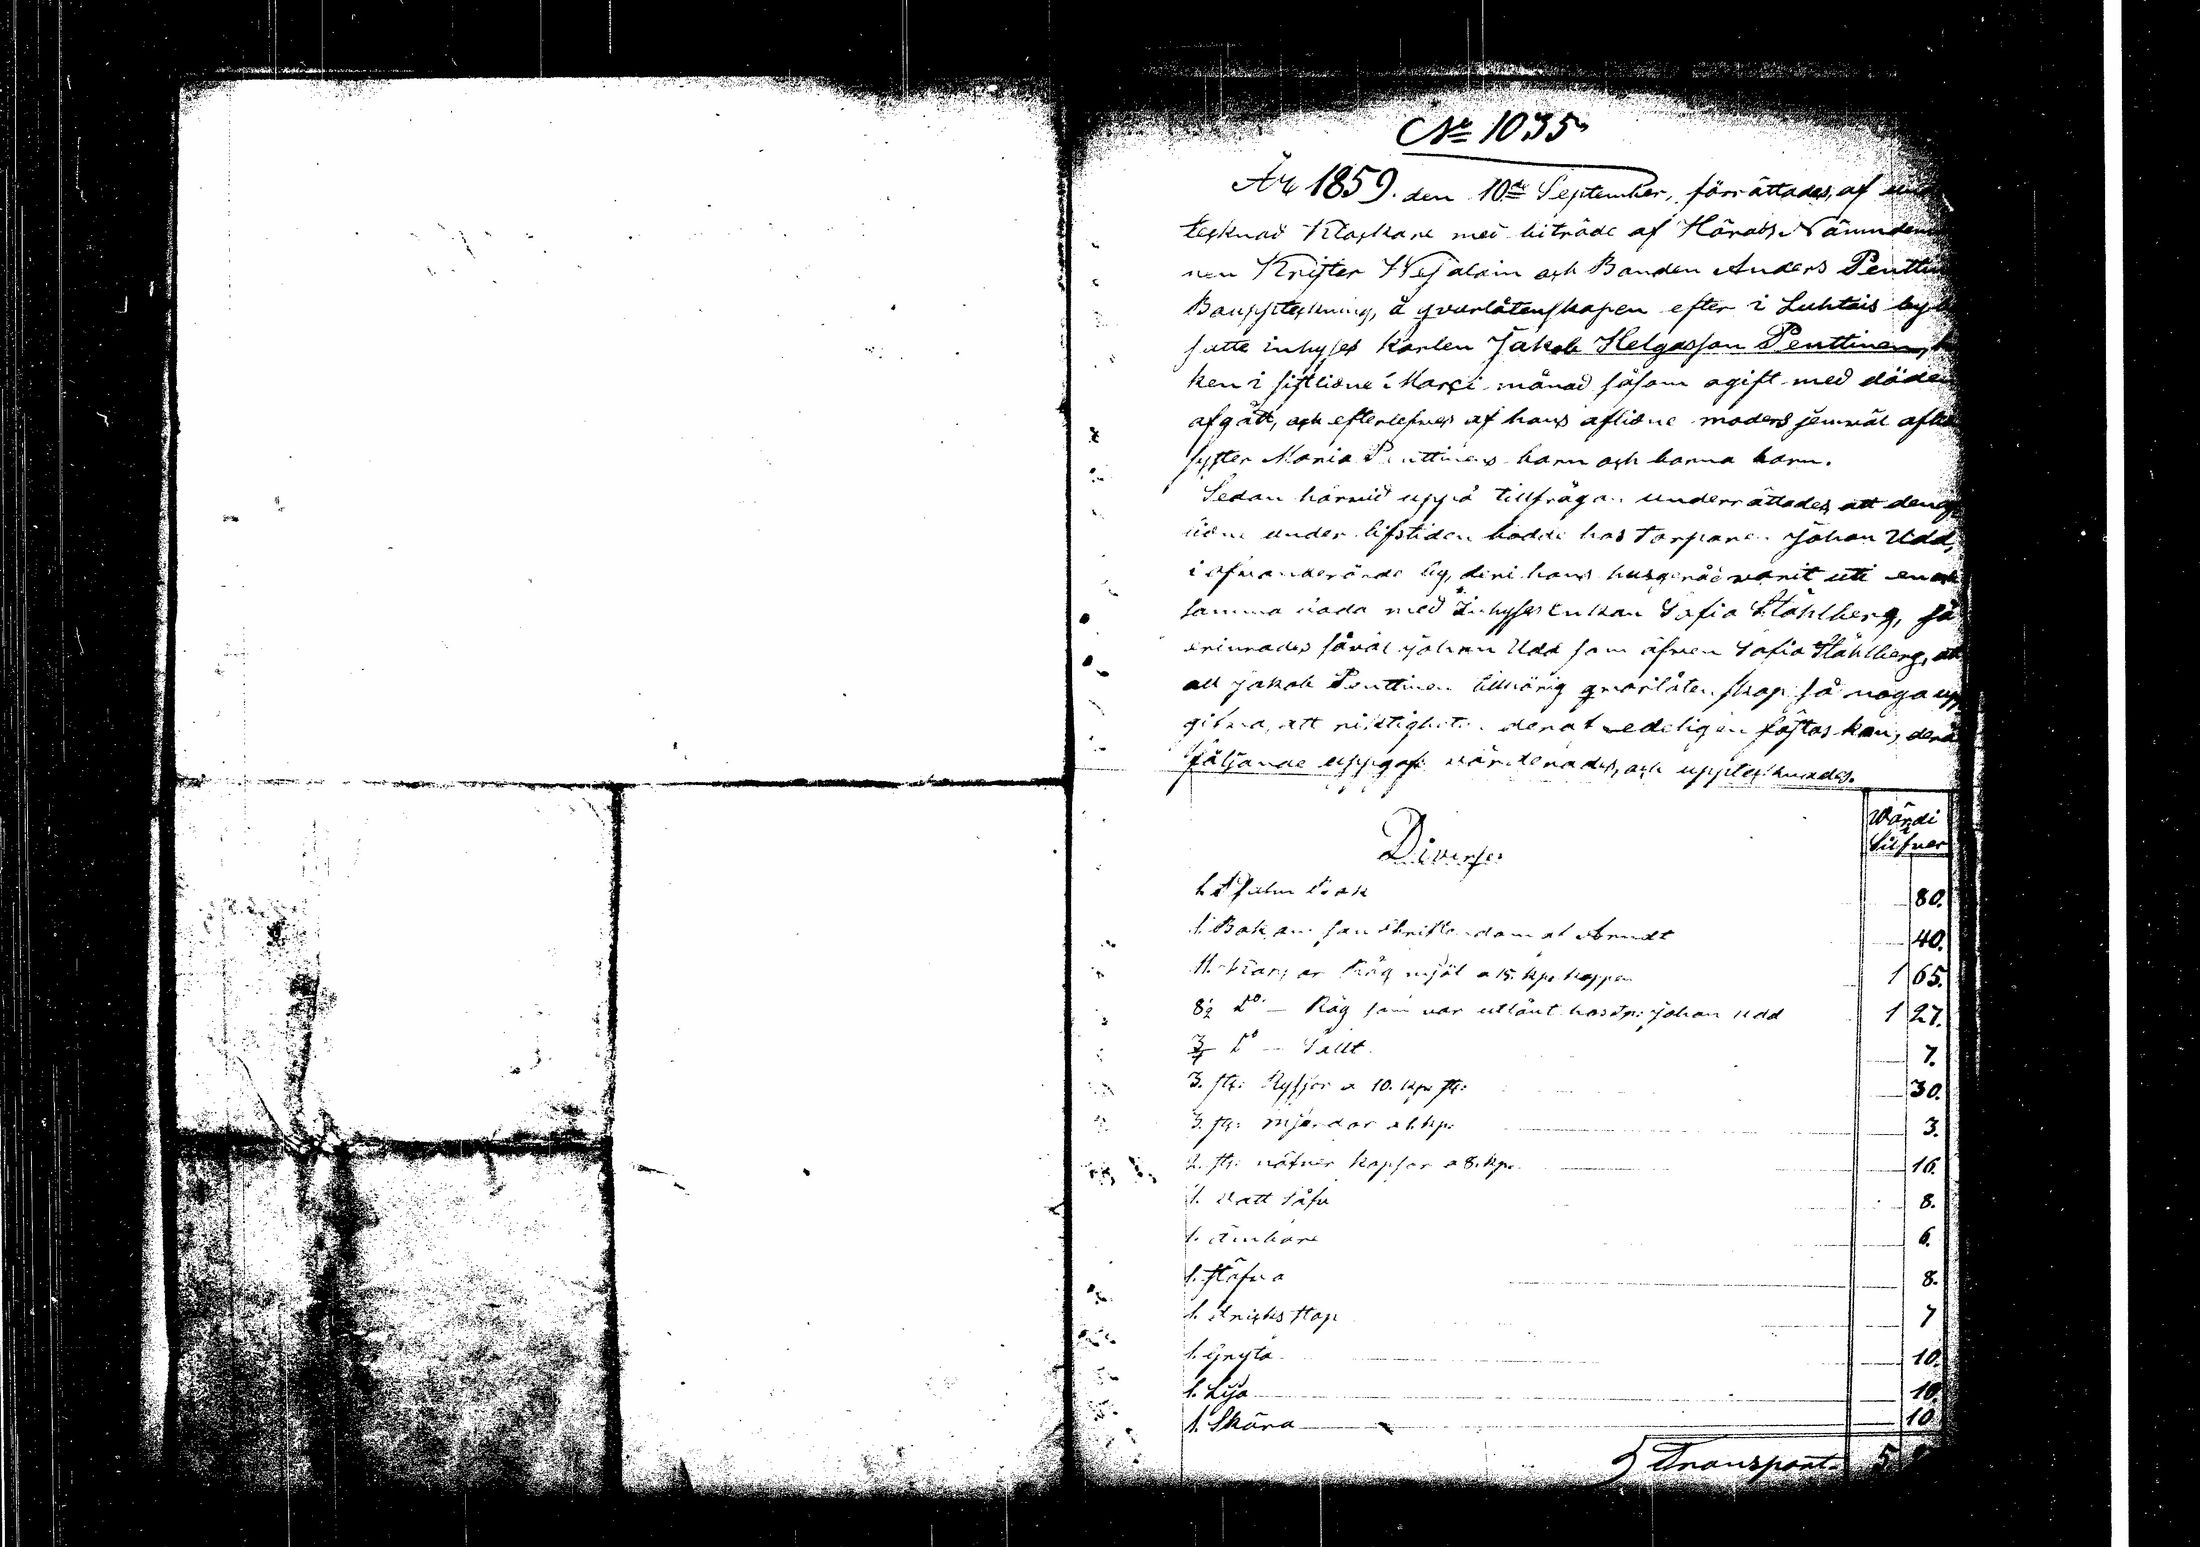 No 1035
År 1859. den 10de September, förrättades, af und
tecknad Klockare med biträde af Härads Nämndem
nen Krister Wesalain och Bonden Anders Penttin
Bouppteckning, å qvarlåtenskapen efter i Luhtais by b
satte inhyses karlen Jakob Helgasson Penttinen,
ken i sistlidne Marci månad såsom ogift med döden
afgått, och efterlefves af hans aflidne moders jemväl aflid
syster Maria Penttinens barn och barna barn.
Sedan härvid uppå tillfrågan underrättades, att den af
lidne under lifstiden bodde hos Torparen Johan Udd,
i ofvanberörde by, deri hans husgeråd varit uti en och
samma boda med Inhyses Enkan Sofia Ståhlberg, så
erinrades såväl Johan Udd som äfven Sofia Ståhlberg, att
all Jakob Penttinen tillhörig qvarlåtenskap så noga upp
gifva, att riktigheten deraf edeligen fästas kan, derå
följande uppgaf: värderades, och upptecknades.
Wärdi
i
Silfver
Diverse
1. Psalm Bok 80.
1. Bok om san Christendom af Arndt 40.
11. Kappar Råg mjöl a 15. kpr. kappen 1 65.
8½ Do — Råg som var utlånt hos Johan Udd 1 27.
¾ Do — Sallt 7.
3. st: Ryssjor a 10. kpr st: 30.
3. st: mjerdar a 1. kpr. 3.
2. st: näfver kopsor a 8. kpr. 16.
1. Vatt såfu 8.
1. Ämbare 6.
1. Stäfva 8.
1. Dricks stop 7
1. Gryta 10.
1. Lija 10.
1. Skära 10
Transport. 5